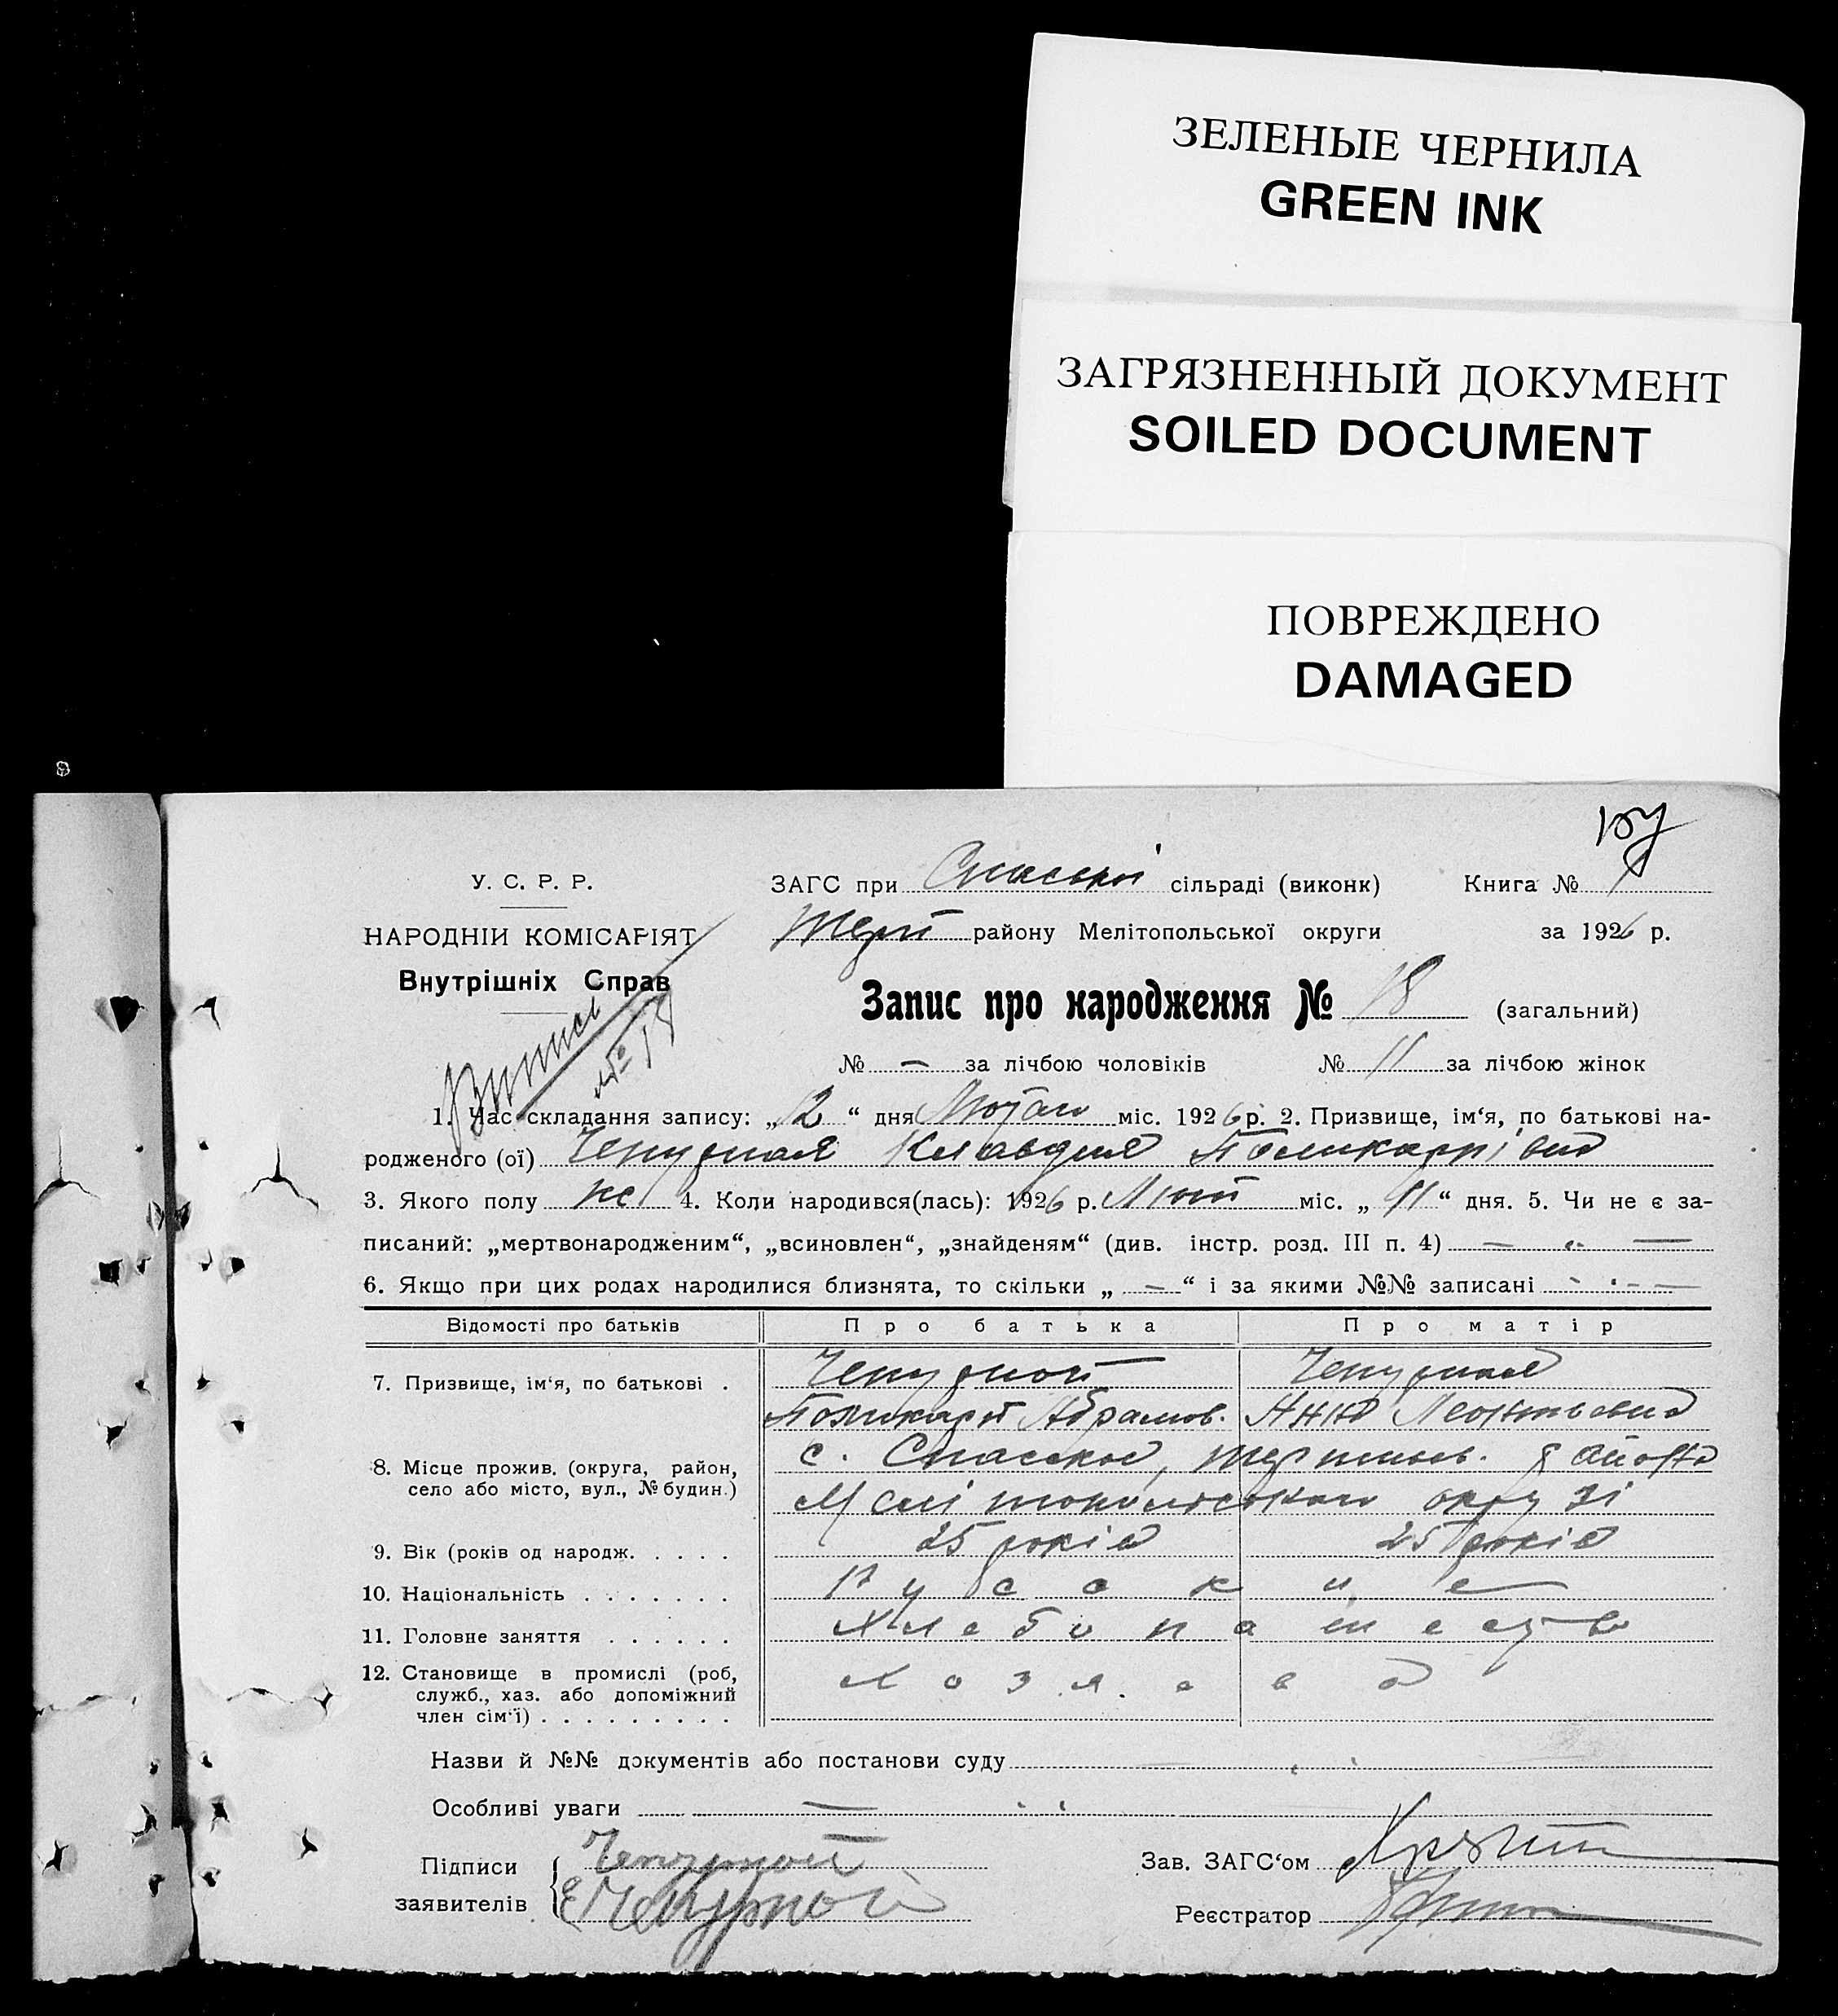 ЗЕЛЕНЫЕ ЧЕРНИЛА
GREEN INK
ЗАГРЯЗНЕННЫЙ ДОКУМЕНТ
SOILED DOCUMENT
ПОВРЕЖДЕНО
DAMAGED
У. С. Р. Р.
НАРОДНІЙ КОМІСАРІЯТ
Внутрішніх Справ
ЗАГС при Спаській сільраді (виконк) Книга №
Терп району Мелітопольської округи за 1926 р.
Запис про народження № 18 (загальний)
№ — за лічбою чоловіків № 11 за лічбою жінок
Выпись
№ 18
1. Час складання запису: „12“ дня Лютаго міс. 1926 р. 2. Призвище, ім‘я, по батькові на-
родженого (ої) Чепурная Клавдия Поликарпівна
3. Якого полу же 4. Коли народився(лась): 1926 р. Лют міс. „11“ дня. 5. Чи не є за-
писаний: „мертвонародженим“, „всиновлен“, „знайденям“ (див. інстр. розд. III п. 4) —
6. Якщо при цих родах народилися близнята, то скільки „—“ і за якими №№ записані —
Відомості про батьків Про батька Про матір
7. Призвище, ім‘я, по батькові . Чепурной Чепурная
Поликарп Абрамов. Анна Леонтьевна
8. Місце прожив. (округа, район, село або місто, вул., № будин.) с. Спаское, Терпиньв. района
Мелітопольскаго округі
9. Вік (років од народж. . . . . 25 років 25 років
10. Національність . . . . . . . Русские
11. Головне заняття . . . . . . Хлебопашество
12. Становище в промислі (роб,
служб., хаз. або допоміжний
член сім‘ї) . . . . . . . . .
Назви й №№ документів або постанови суду
Особливі уваги —
Підписи Чепурной
заявителів Чепурной
Зав. ЗАГС‘ом
Реєстратор